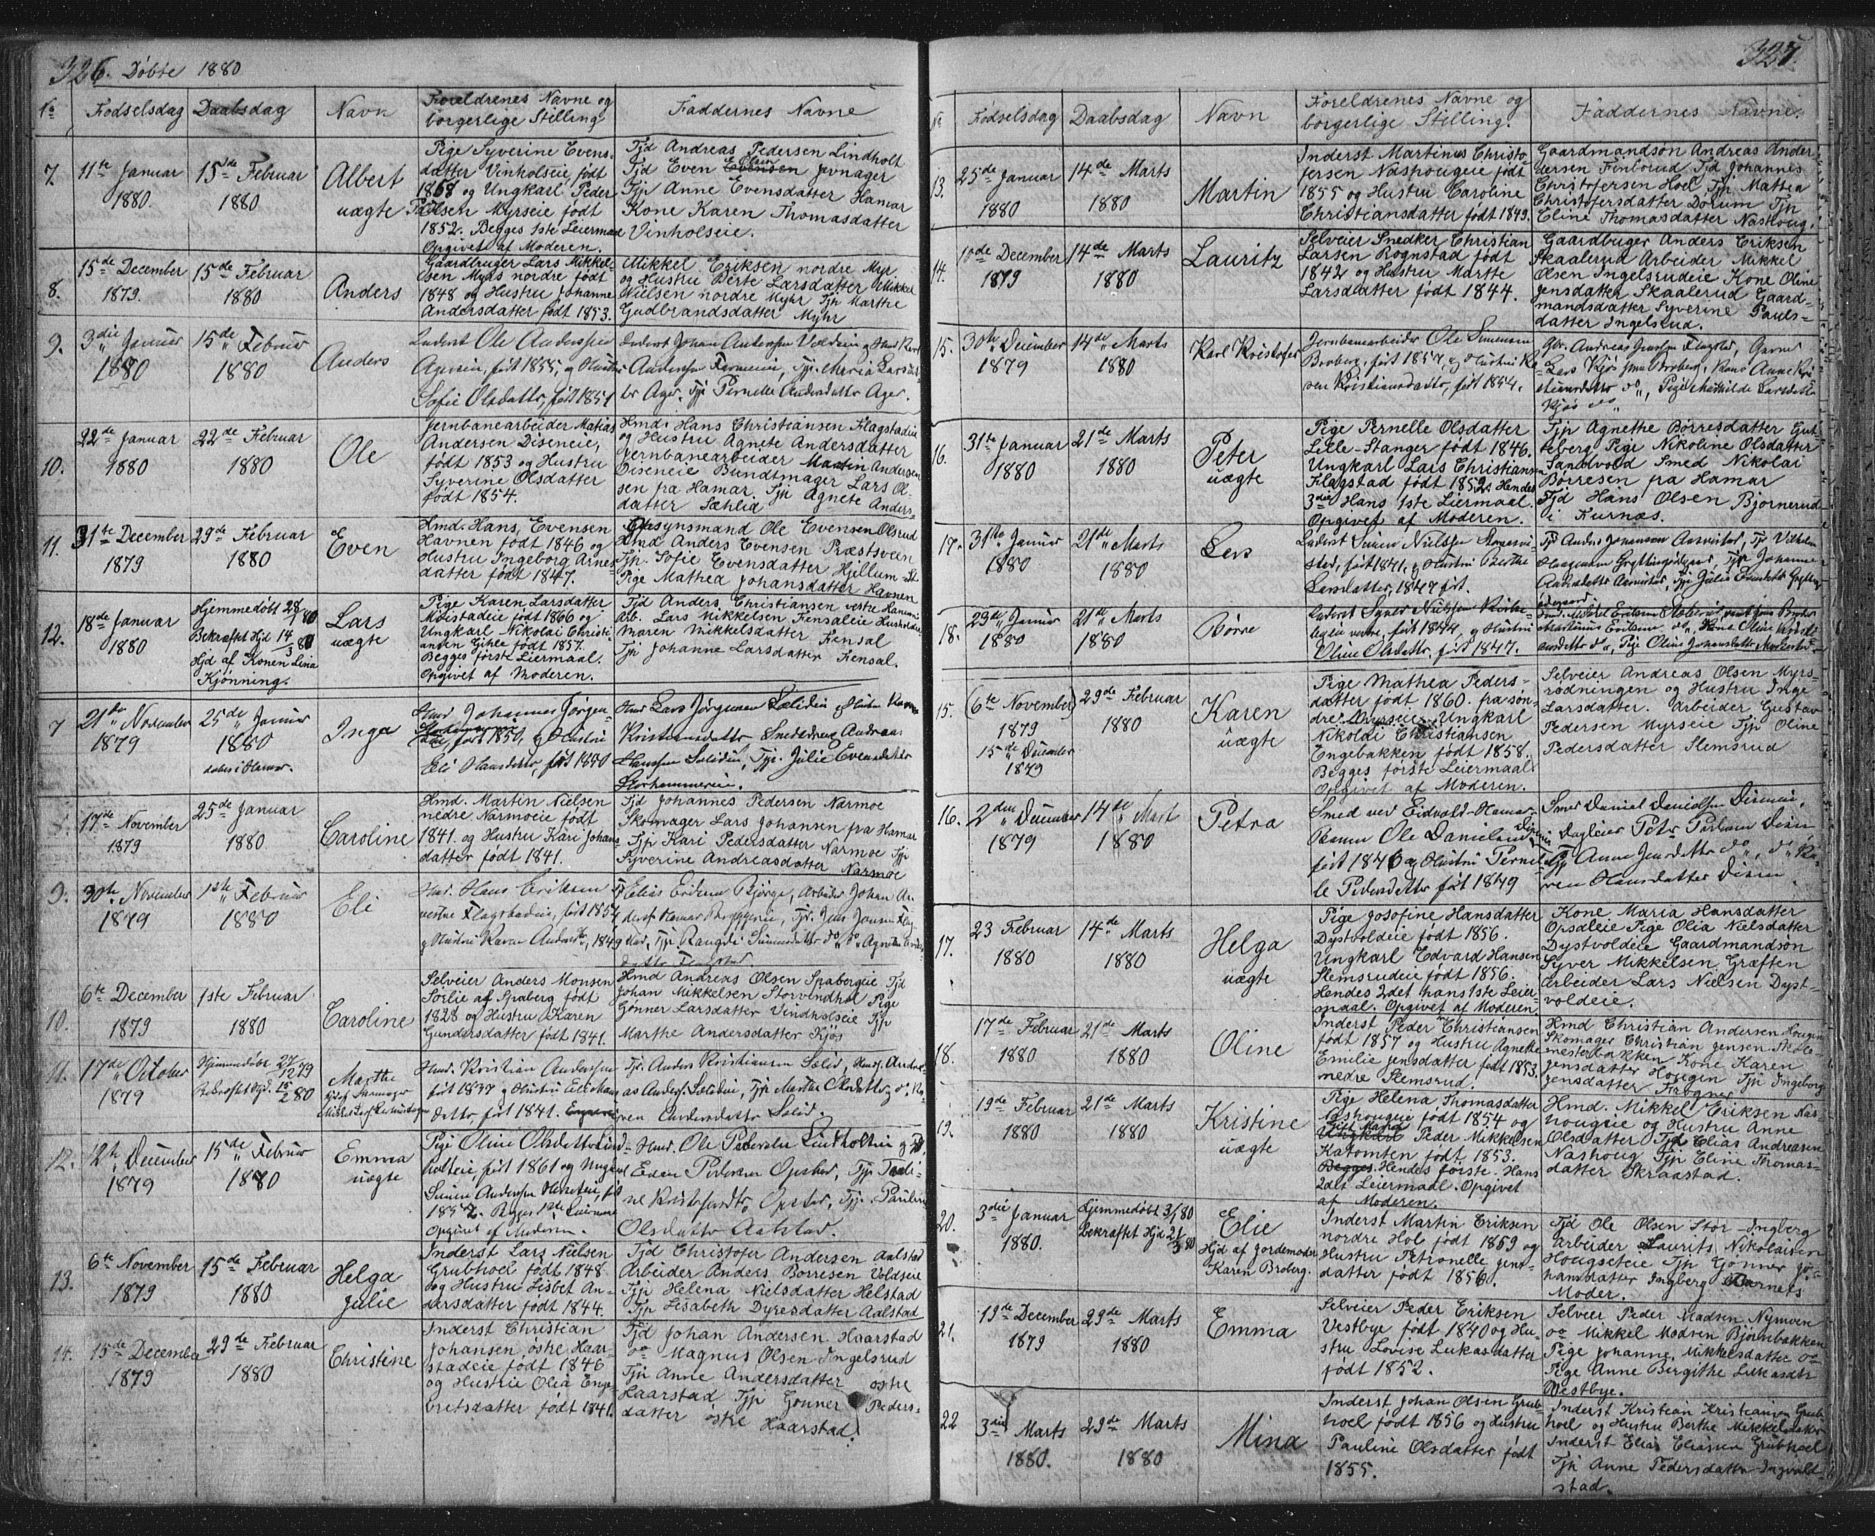 326. Døbte 1880
No Fødselsdag Daabsdag Navn Foreldrenes Navne og borgerlige Stilling Faddernes Navne
7. 11te Januar 1880. 15de Februar 1880 Albert uægte
Pige Syverine Evens-
datter Vinholseie født
1858 og Ungkarl Peder
Olsen Myrseie født
1852. Begges 1ste Leiermaal
Opgivet af Moderen.
Tjd Andreas Pedersen Lindholt
Tjd Even Olsen Jevnager
Tjp Anne Evensdatter Hamar
Kone Karen Thomasdatter
Vinholseie.
8. 15de December 1879. 15de Februar 1880 Anders
Gaardbruger Lars Mikkel-
sen Myhr nordre født
1848 og Hustru Johanne
Andersdatter født 1853.
Mikkel Eriksen nordre Myr
og Hustru Berte Larsdatter Mikkel
Nielsen nordre Myhr Tjp Marthe
Gudbrandsdatter Myhr
9. 3die Januar 1880 15de Februar 1880 Anders
Inderst Ole Andersen
Agerseie, født 1855, og Hustru
Sofie Olsdatter, født 1851
Inderst Johan Andersen
Tjp. Maria Lars
Ager. Tjp Pernelle Andersdatter Ager.
10. 22de Januar 1880 22de Februar 1880 Ole
Jernbanearbeider Matias
Andersen Diseneie,
født 1853 og Hustru
Syverine Olsdatter
født 1854.
Hmd: Hans Christiansen Flagstadeie
og Hustru Agnete Andersdatter
Jernbanearbeider Martin Andersen
Diseneie Bundtmager Lars Ol-
sen fra Hamar Tjp Agnete Anders-
datter Sæhlie
11. 31te December 1879 29de Februar 1880 Even
Hmd. Hans Evensen
Havnen født 1846 og
Hustru Ingeborg Arnes-
datter født 1847.
Opsynsmand Ole Evensen Olsrud
Hmd Anders Evensen Præstsveen
Tjp. Sofie Evensdatter Hjellum
Pige Mathea Johansdatter Havnen
12. 18de Januar 1880 Hjemmedøbt 28/1 80
Bekræftet Hjd 14/3 80
Hjd af Konen Lina
Kjønning. Lars uægte
Pige Karen Larsdatter
Moestadeie født 1866 og
Ungkarl Nikolai Christi-
ansen født 1857.
Begges første Leiermaal.
Opgivet af Moderen.
Tjd Anders Christiansen vestre Hammer
Arb. Lars Mikkelsen Fensaleie Husholder
Maren Mikkelsdatter Fensal
Tjp Johanne Larsdatter Fensal.
7 21de November 1879 25de Januar 1880
døbt i Hamar. Inga
Hmd Johannes Jørgen-
født 1850, og Hustru
Eli Hansdatter, født 1840
Hmd Lars Jørgensen og Hustru Karen
Kristiansdatter Andreas
Hanssen Tjp. Julie Evensdatter
Storhammereie.
8. 17de November 1879 25de Januar 1880 Caroline
Hmd. Martin Nielsen
nedre Narmoeie født
1841. og Hustru Kari Johans-
datter født 1841.
Tjd Johannes Pedersen Narmoe
Skomager Lars Johansen fra Hamar
Tjp Kari Pedersdatter Narmoe Tjp
Syverine Andreasdatter Narmoe
9. 30te November 1879 1ste Februar 1880 Eli
Hmd. Hans Eriksen
vestre Flagstadeie, født 1854
og Hustru Karen Andersdtr, 1849
Elias Eriksen Bjørge, Arbeider Johan An-
dersen Hamar Tjr. Jens Jonsen Flag-
stad, Tjp Rangdi Simensdatter do, do Agnethe
Flagstad
10. 6te December 1879 1ste Februar 1880 Caroline
Selveier Anders Monsen
Sørlie af Spaberg født
1828 og Hustru Karen
Gundersdatter født 1841.
Hmd Andreas Olsen Spabergeie Tjd
Johan Mikkelsen Storvindhol Pige
Gønner Larsdatter Vindholseie Tjp
Marthe Andersdatter Kjøs
11. 17de October 1879 Hjemmedøbt 27/12 79
Bekræftet Hjd. 15/2 80 Marthe
Hmd. Kristian Andersen
født 1837 og Hustru
datter, født 1841.
Tjr. Anders Kristiansen Solid, Andre-
as Anders. Tjp Marthe Olsdatter do, Ka-
ren Andersdatter Solid.
12. 12te December 1879 15de Februar 1880 Emma uægte
Pige Oline Olsdatter Lind-
holteie, født 1861 og Ungkarl
Simen Andersen født
1852. Begges 1ste Leiermaal
Opgivet af Moderen.
Hmd. Ole Pedersen Lintholteie og Tjd.
Even Pedersen Opstad, Tjp
Kristofersdtr Opstad, Tjp. Pauline
Olsdatter Aalstad.
13. 6te November 1879 15de Februar 1880 Helga Julie
Inderst Lars Nielsen
Grubhoel født 1848
og Hustru Lisbet An-
dersdatter født 1844.
Tjd Christofer Andersen Aalstad
Arbeider Anders Børresen Voldseie
Tjp Helena Nielsdatter Helstad
Tjp Lisabeth Dyresdatter Aalstad
14. 15de December 1879 29de Februar 1880 Christine
Inderst Christian
Johansen østre Haar-
stadeie født 1846
og Hustrue Olia Enge-
bretsdatter født 1841.
Tjd Johan Andersen Haarstad
do Magnus Olsen Ingelsrud
Tjp Anne Andersdatter østre
Haarstad Tjp Gønner Peders-
datter østre Haarstad.
327.
No Fødselsdag Daabsdag Navn Foreldrenes Navne og borgerlige Stilling Faddernes Navne.
13. 25de Januar 1880 14de Marts 1880 Martin
Inderst Martinus Christo-
fersen Næshougeie født
1855 og Hustru Caroline
Christiansdatter født 1849.
Gaardmandsøn Andreas Ander-
dersen Finborud Tjd Johannes
Christofersen Hoel Tjp Mathea
Christofersdatter Dørum Tjp
Eline Thomasdatter Næshoug.
14. 10de December 1879 14de Marts 1880 Lauritz
Selveier Snedker Christian
Larsen Rognstad født
1842 og Hustru Marthe
Larsdatter født 1844.
Gaardbruger Anders Eriksen
Skaalerud Arbeider Mikkel
Olsen Ingelsrudeie Kone Oline
Jensdatter Skaalerud Gaard-
mandsdatter Syverine Pauls-
datter Ingelsrud.
15. 30te December 1879 14de Marts 1880 Karl Kristofer
Jernbanearbeider Ole Simensen
Broberg, født 1857, og Hustru Ka-
ren Kristiansdatter, født 1854.
Gbr. Andreas Jensen Flagstad, Garver
Lars Kjøs Broberg, Kone Anne Kri-
stiansdatter do, Pige Mathilde Larsdatter
Kjøs do
16. 31te Januar 1880 21de Marts 1880 Peter uægte
Pige Pernelle Olsdatter
Lille-Stanger født 1846.
Ungkarl Lars Christiansen
Flagstad født 1852. Hendes
3die Hans 1ste Leiermaal.
Opgivet af Moderen.
Tjp Agnethe Børresdatter Gub-
berberg Pige Nikoline Olsdatter
Sandvold Smed Nikolai
Børresen fra Hamar
Tjd Hans Olsen Bjørnerud
i Furnæs.
17. 31te Januar 1880 21de Marts 1880 Lars
Inderst Simen Nielsen
født 1841, og Hustru Berthe
Larsdatter, 1847 født.
Tjd Anders Johansen Tjp Vilhelm
Olsen Tjp Johanne
18. 29de Januar 1880 21de Marts 1880 Børre
Inderst Nielsen
vestre, født 1844, og Hustru
Oline Olsdatter, født 1847.
Martinus Eriksen do, Kone Oline
do, Pige Oline Johansdatter
15. (6te November) 1879
15de December 1879 29de Februar 1880 Karen uægte
Pige Mathea Peders-
datter født 1860. fra søn-
dre Myrseie Ungkarl
Nikolai Christiansen
Engebakken født 1858.
Begges første Leiermaal
Opgivet af Moderen.
Selveier Andreas Olsen Myrs-
rødningen og Hustru Inge
Larsdatter. Arbeider Gustav
Pedersen Myrseie Tjp Oline
Pedersdatter Slemsrud
16. 2den December 1879 14de Marts 1880 Petra
Smed ved Eidsvold-Hamar
Banen Ole Danielsen Disen
født 1846 og Hustru Pernel-
le Pedersdatter født 1849
Smed Daniel Danielsen Diseneie,
Dagleier Peter Paulsen Disen
Tjp Anne Jensdatter do, do Ka-
ren Hansdatter Disen
17. 23 Februar 1880 14de Marts 1880 Helga uægte
Pige Josefine Hansdatter
Dystvoldeie født 1856.
Ungkarl Edvard Hansen
Slemsrudeie født 1856.
Hendes 2det hans 1ste Leier-
maal. Opgivet af Moderen.
Kone Maria Hansdatter
Opsaleie Pige Olia Nielsdatter
Dystvoldeie Gaardmandsøn
Syver Mikkelsen Græften
Arbeider Lars Nielsen Dyst-
voldeie.
18. 17de Februar 1880 21de Marts 1880 Oline
Inderst Peder Christiansen
født 1857 og Hustru Agnethe
Emilie Jensdatter født 1853.
nedre Slemsrud.
Hmd Christian Andersen Hougen
Skomager Christian Jensen Skole-
mesterbakken Kone Karen
Jensdatter Hougen Tjp Ingeborg
Jensdatter Fangner
19. 19de Februar 1880 21de Marts 1880 Kristine uægte
Pige Helena Thomasdatter
Næshougeie født 1854 og
Gift Mand Peder Mikkelsen
Katomten født 1853.
Hendes første. Hans
2det Leiermaal. Opgivet
af Moderen.
Hmd. Mikkel Eriksen Næs-
hougeie og Hustru Anne
Olsdatter Tjd Elias Andreasen
Næshoug Tjp Eline Thomas-
datter Skraastad.
20. 3die Januar 1880. Hjemmedøbt 3/1 80
Bekræftet Hjd 21/3 80 Elie
Hjd af Jordemoder
Karen Broberg.
Inderst Martin Eriksen
nordre Hol født 1859 og
Hustru Petronelle Jens-
datter født 1856.
Tjd Ole Olsen Stor-Ingberg
Arbeider Laurits Nikolaisen
Hougseteie Tjp Gønner Jo-
hansdatter Ingberg Barnets
Moder.
21. 19de December 1879 29de Marts 1880 Emma
Selveier Peder Eriksen
Vestbye født 1840 og Hu-
stru Lovise Lukasdatter
født 1852.
Selveier Peder Madsen Nymoen
do Mikkel Madsen Bjørnbakken
Pige Johanne Mikkelsdatter do
Pige Anne Bergithe Lukasdtr
Vestbye.
22 3die Marts 1880. 29de Marts 1880 Mina
Inderst Johan Olsen Grub-
hoel født 1856 og Hustru
Pauline Olsdatter født
1855.
Inderst Kristian Kristiansen Grub-
hoel og Hustru Berthe Mikkelsdatter
Inderst Elias Eliasen Grubhoel
Tjp Anne Pedersdatter Ingvald-
stad.